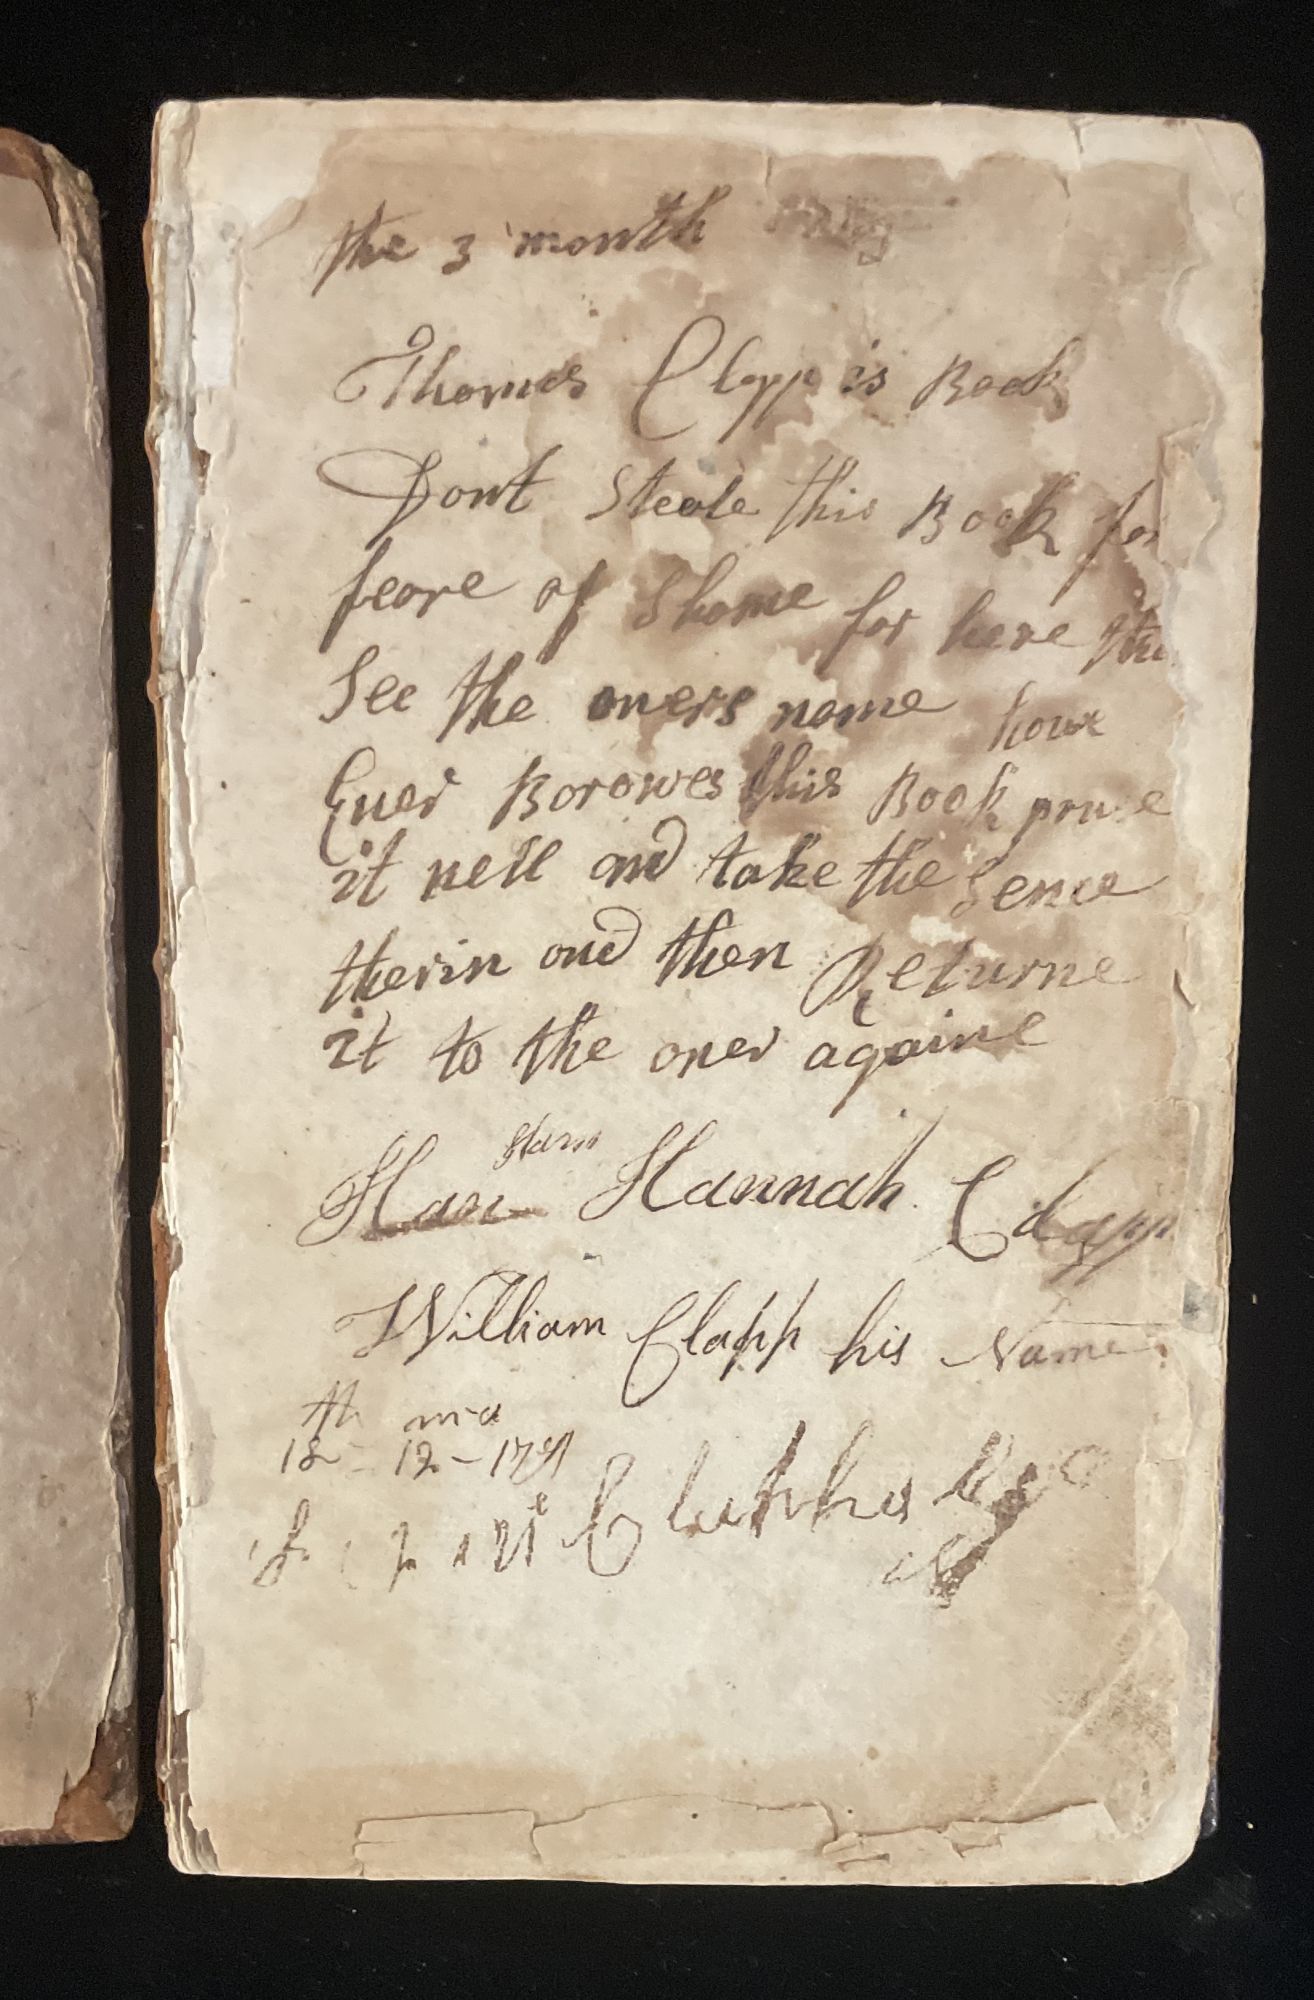 the 3 month
Thomas Clapp is Book
Dont Steale this Book for
feare of Shame for here the
See the oners name how
Ever Borowes this Book pruse
it well and take the Sence
therin and then Returne
it to the oner againe
Ham
Han Hannah Clapp
William Clapp his Name
th mo
12 - 12 -